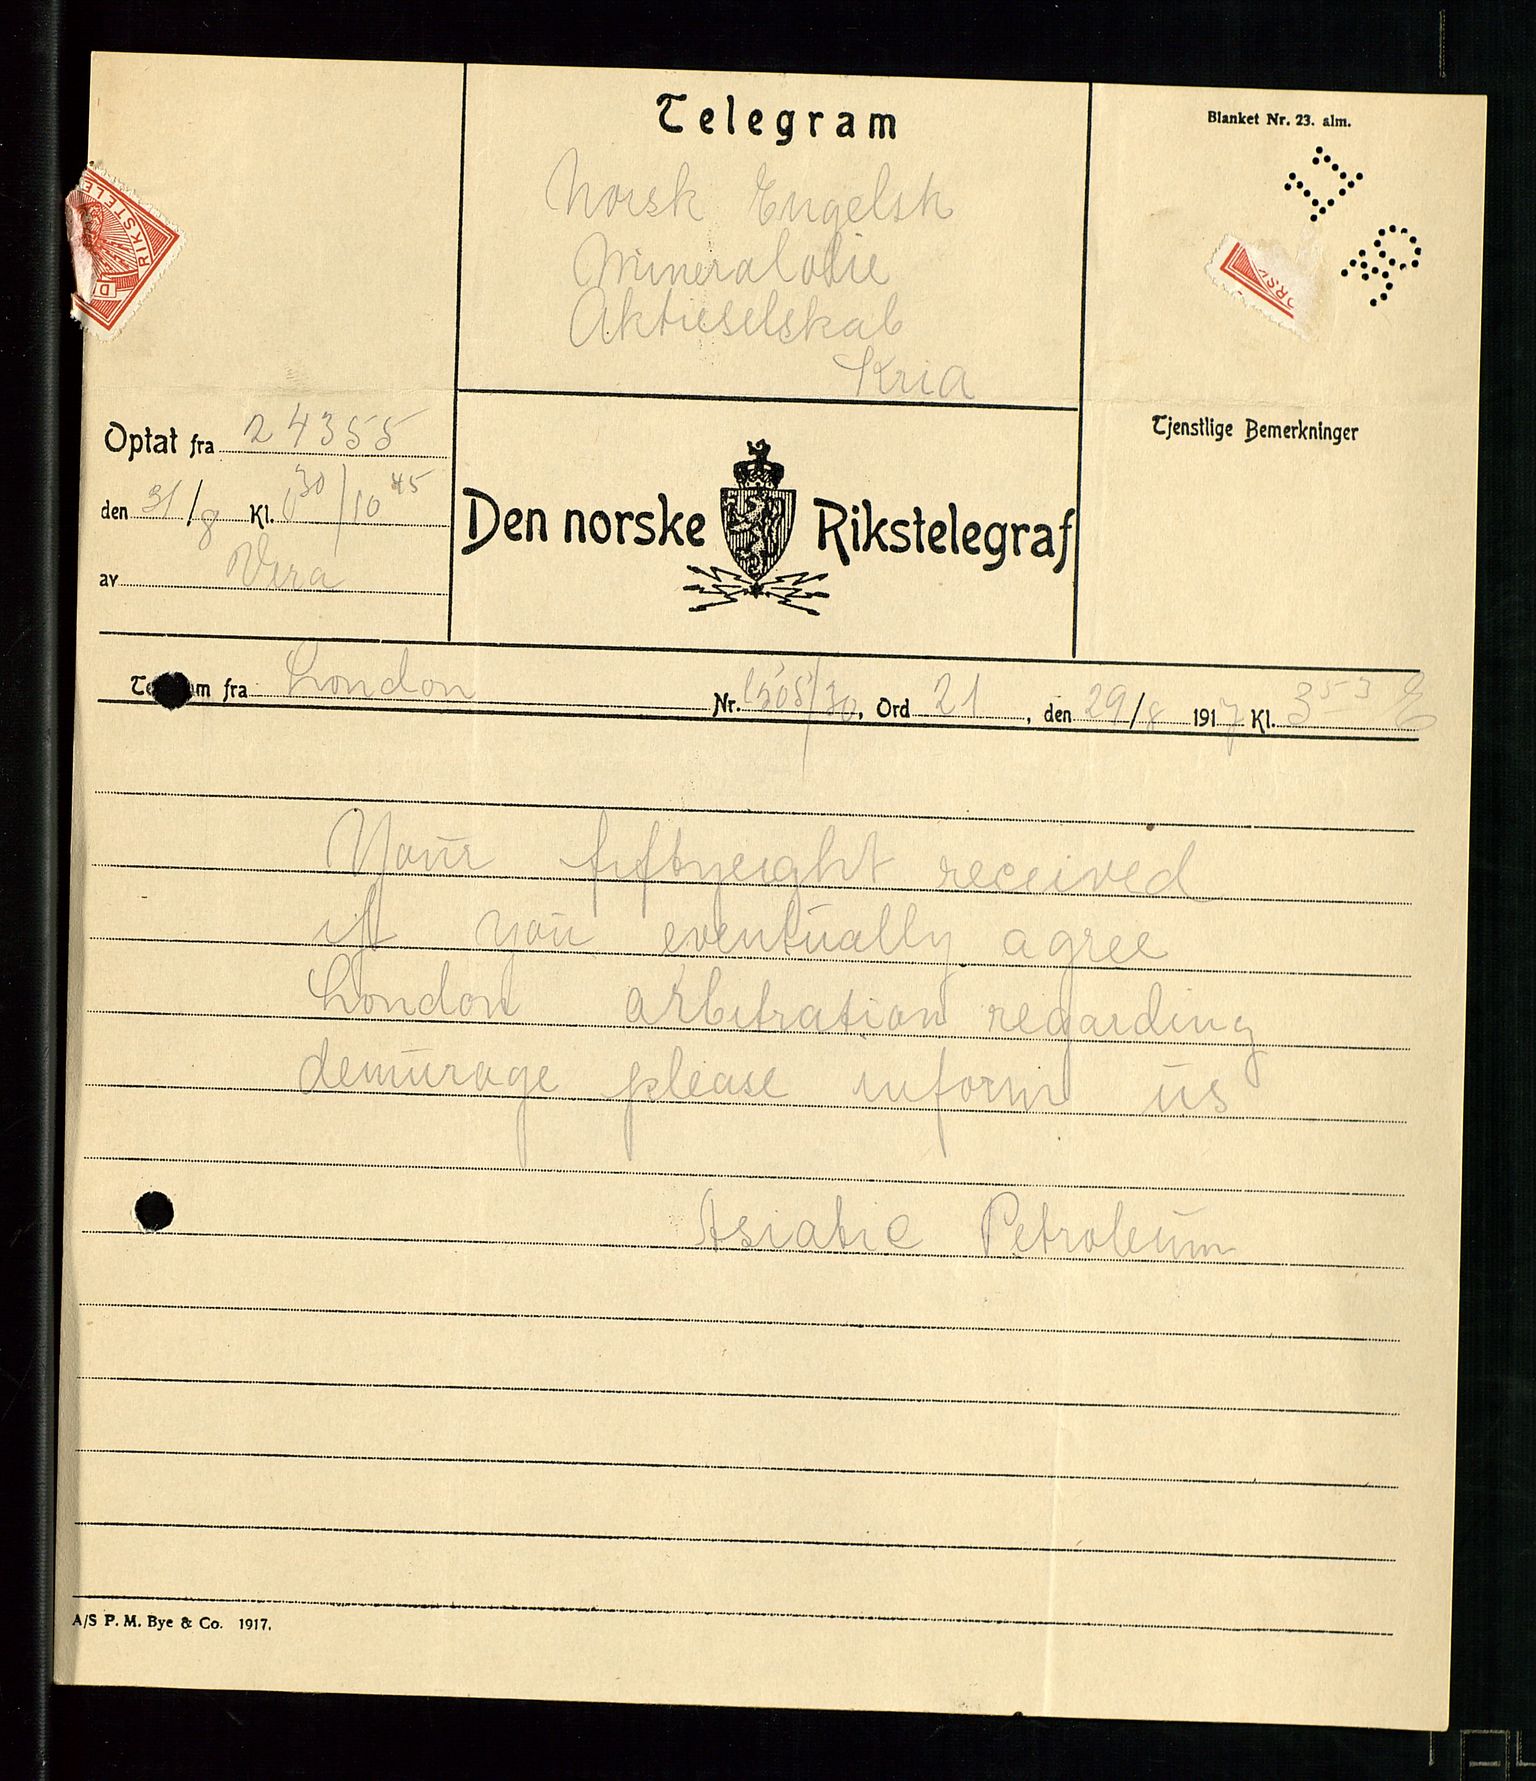 Telegram
Blanket Nr. 23. alm.
Norsk Engelsk
Mineralolie
Aktieselskab
Kria
RIKSTELE
Optat fra 24355
den 31/8 Kl. 30/10 45
av Vera
Den norske Rikstelegraf
Tjenstlige Bemerkninger
Telegram fra London Nr. 1505/30, Ord 21, den 29/8 1917 Kl. 3 53
Your fiftyeight received
if you eventually agree
London arbitration regarding
demurage please inform us
Asiatic Petroleum
A/S P. M. Bye & Co. 1917.